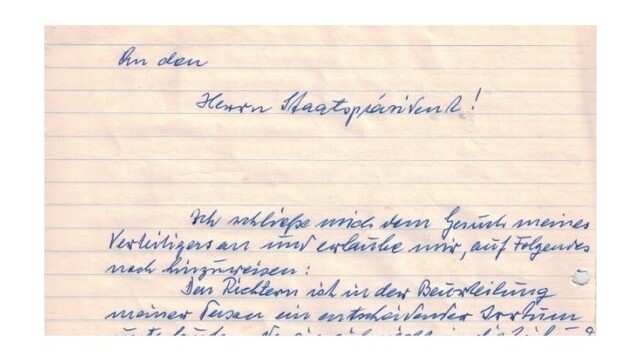 An den
Herrn Staatspräsident!
Ich schließe mich dem Gesuch meines
Verteidigers an und erlaube mir, auf Folgendes
noch hinzuweisen:
Den Richtern ist in der Beurteilung
meiner Person ein entscheidender Irrtum